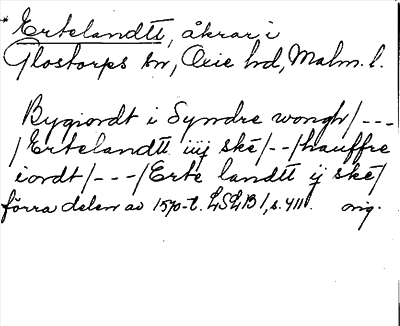 * Ertelandtt, åkrar i
Glostorps sn, Oxie hd, Malm. l.
Bygiordt i Syndre wongh/---
/Ertelandtt iiij ske/--/hauffre
iordt/---/Erte landtt ij ske/
förra delen av 1570-t. LSLB 1, s. 411. orig.